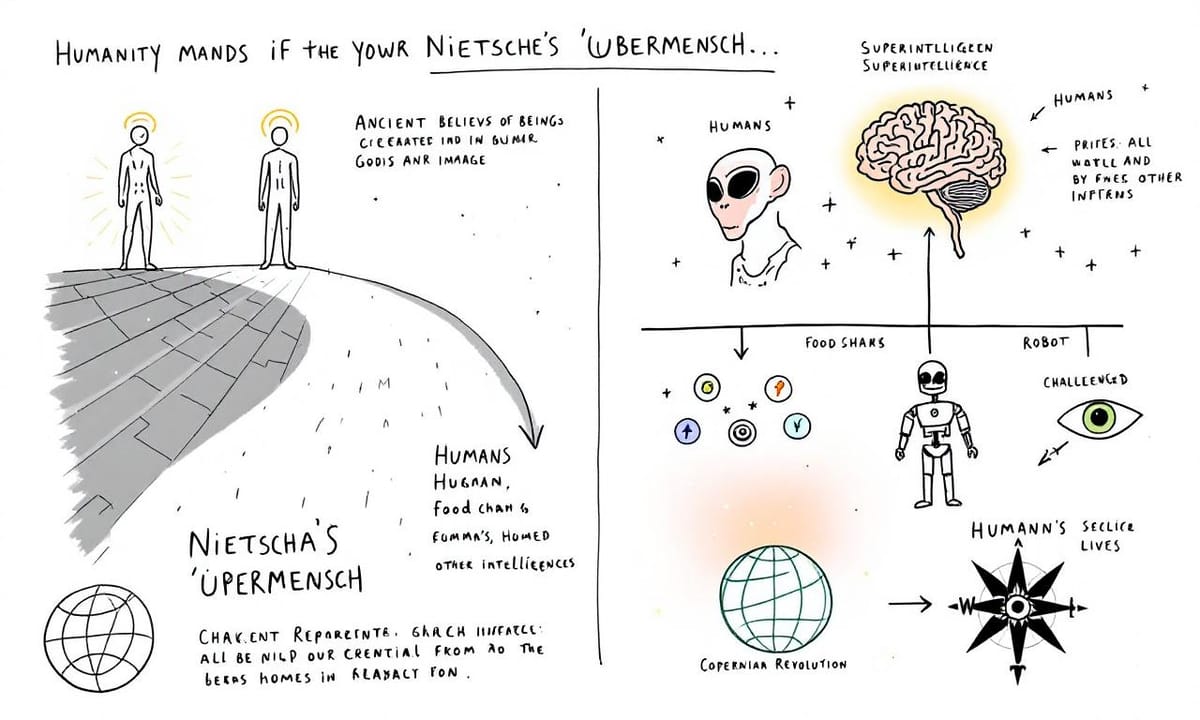 HUMANITY MANDS if THE YOWR NiETSCHE'S 'ÜBERMENSCH...
ANCIENT BELIEVS OF BEINGS
CREEAATEE IND IN GUMAR
GODIS ANR IMAGE
HUMANS
HUGMAN,
FOOD CHAM &
FOMMA'S, HOMED
OTHER INTELLIGENCES
NiETSCHA'S
'ÜPERMENSCH
CHAK.ENT REPARCENTE. GHRCH
ALL BE NILP OUR CRENTIAL FROM AO THE
BERAS HOMES IN RLABACT FON.
SUPERINTLLIGEEN
SUPERINTELLIENCE
HUMANS
HUMANS
PRIFES. ALL
WATLE AND
BY FNES OTHER
INFTRNS
FOOD SHAMS
ROBOT
CHALLENGED
HUMANN'S SECLICE
LIVES
W
COPERNIAA REVOLUTION